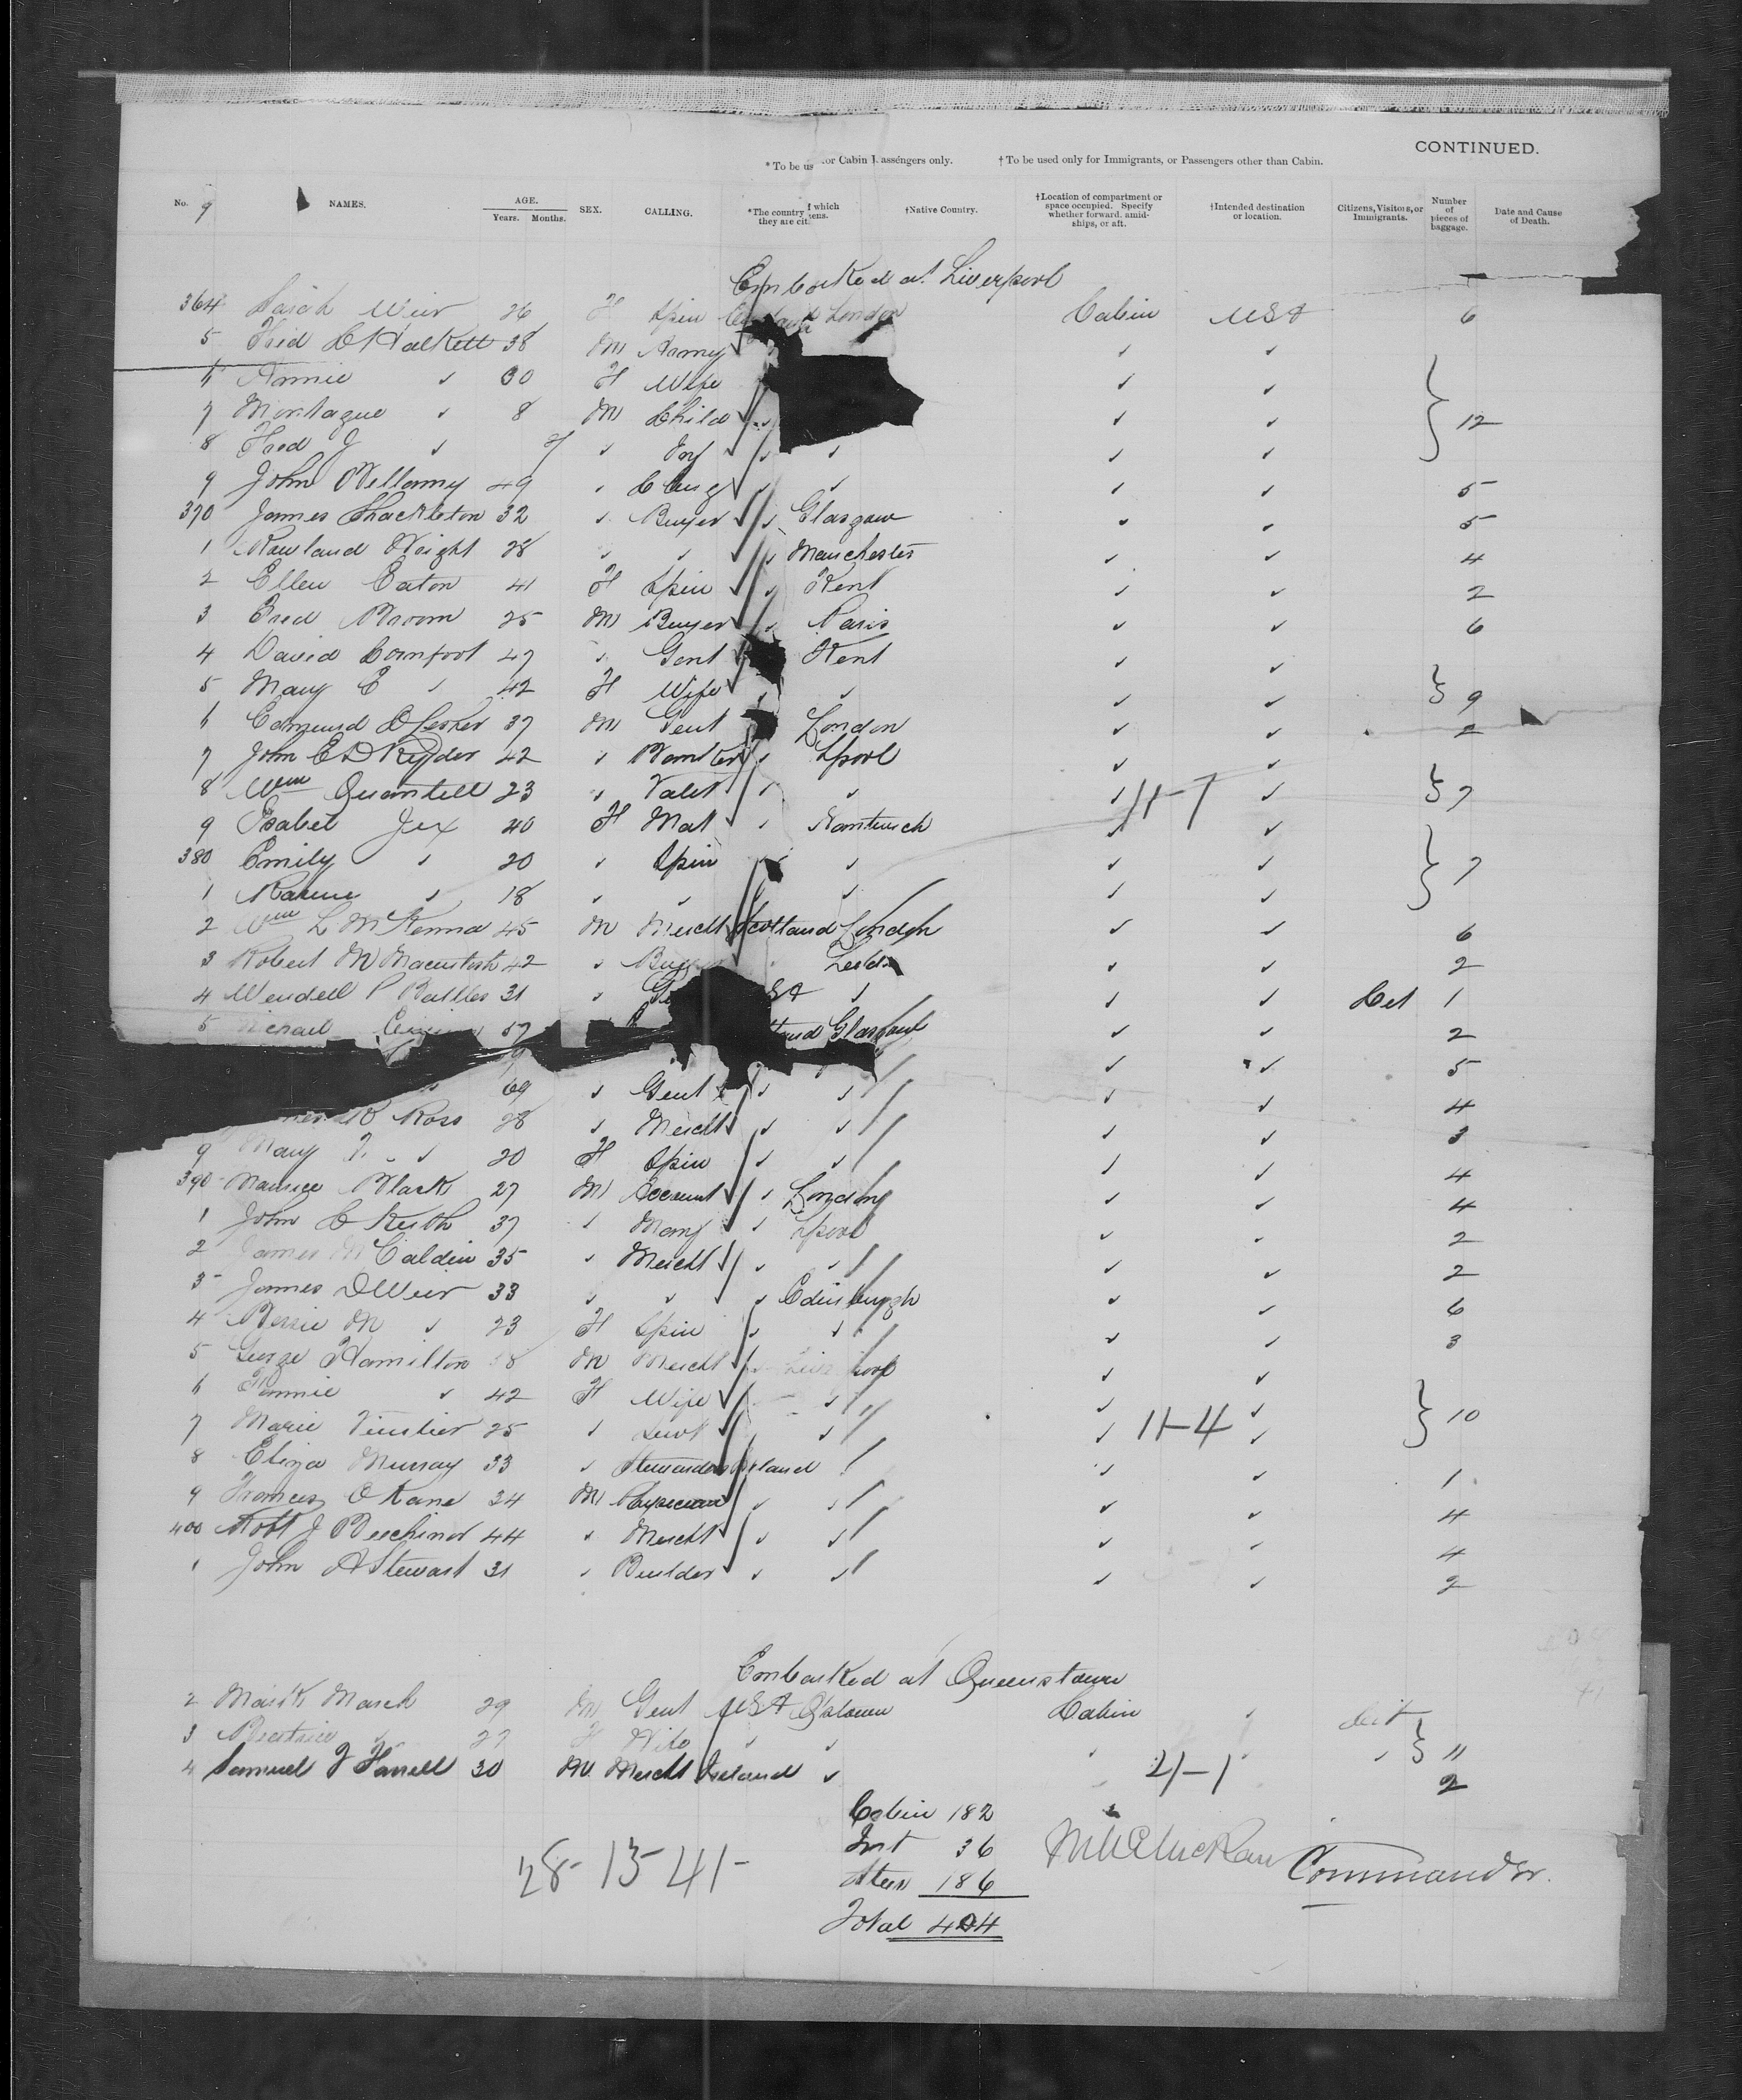 CONTINUED.
* To be us or Cabin Passengers only. † To be used only for Immigrants, or Passengers other than Cabin.
No. 9 NAMES. AGE. Years. Months. SEX. CALLING. *The country f which they are cit ens. †Native Country. †Location of compartment or space occupied. Specify whether forward, amidships, or aft. †Intended destination or location. Citizens, Visitors, or Immigrants. Number of pieces of baggage. Date and Cause of Death.
Embarked at Liverpool
364 Sarah Weir 26 F Spin London Cabin USA 6
5 Fred C Halkett 38 M Army ✓ ✓
6 Annie ✓ 30 F Wife ✓ ✓
7 Montague ✓ 8 M Child ✓ ✓ 12
8 Fred J ✓ 7 ✓ Inf ✓ ✓ ✓ ✓
9 John Bellamy 49 ✓ Clerg ✓ ✓ ✓ ✓ 5
370 James Shackleton 32 ✓ Buyer ✓ Glasgow ✓ ✓ 5
1 Rowland Wright 28 ✓ ✓ ✓ Manchester ✓ ✓ 4
2 Ellen Eaton 41 F Spin ✓ Kent ✓ ✓ 2
3 Fred Broom 25 M Buyer ✓ Paris ✓ ✓ 6
4 David Cornfoot 47 ✓ Gent Kent ✓ ✓
5 Mary E ✓ 42 F Wife ✓ ✓ ✓ ✓ 9
6 Edmund D Lesker 37 M Gent London ✓ ✓ 2
7 John E D Ryder 42 ✓ Banker ✓ Lpool ✓ ✓
8 Wm Quantell 23 ✓ Valet ✓ ✓ ✓ 11-7 ✓ 7
9 Isabel Jex 40 F Mat ✓ Nantwich ✓ ✓
380 Emily ✓ 20 ✓ Spin ✓ ✓ ✓ 7
1 ✓ 18 ✓ ✓ ✓ ✓ ✓
2 Wm L McKenna 45 M Mercht Scotland London ✓ ✓ 6
3 Robert M Macintosh 42 ✓ Leeds ✓ ✓ 2
4 Wendell P 31 ✓ Ge SA ✓ ✓ ✓ Cit 1
5 Michael 57 land Glasgow ✓ ✓ 2
9 ✓ ✓ 5
✓ 69 ✓ Gent ✓ ✓ ✓ ✓ 4
mes K Ross 28 ✓ Mercht ✓ ✓ ✓ ✓ 3
9 Mary ✓ 20 F Spin ✓ ✓ ✓ ✓ 4
390 Maurice Black 27 M Account ✓ London ✓ ✓ 4
1 John C Keith 37 ✓ Manf ✓ Lpool ✓ ✓ 2
2 James M Caldin 35 ✓ Mercht ✓ ✓ ✓ ✓ 2
3 James D Weir 33 ✓ ✓ ✓ Edinburgh ✓ ✓ 6
4 Bessie M ✓ 23 F Spin ✓ ✓ ✓ ✓ 3
5 George Hamilton 58 M Mercht ✓ Liverpool ✓ ✓
6 Fannie ✓ 42 F Wife ✓ ✓ ✓
7 Marie 25 ✓ Servt ✓ ✓ 11-4 ✓ 10
8 Eliza Murray 33 ✓ Stewardess Ireland ✓ ✓ 1
9 Frances O Kane 34 M Physician ✓ ✓ ✓ ✓ 4
400 Robt J Beechinor 44 ✓ Mercht ✓ ✓ ✓ ✓ 4
1 John A Stewart 31 ✓ Builder ✓ ✓ ✓ ✓ 2
Embarked at Queenstown
2 Mark March 29 M Gent USA Q'stown Cabin ✓ Cit
3 Beatrice ✓ 27 F Wife ✓ ✓ ✓ ✓ ✓ 11
4 Samuel J Farrell 30 M Mercht Ireland ✓ 21-1 2
Cabin 182
Int 36
Steer 186
Total 404
28-13-41-
Commander.